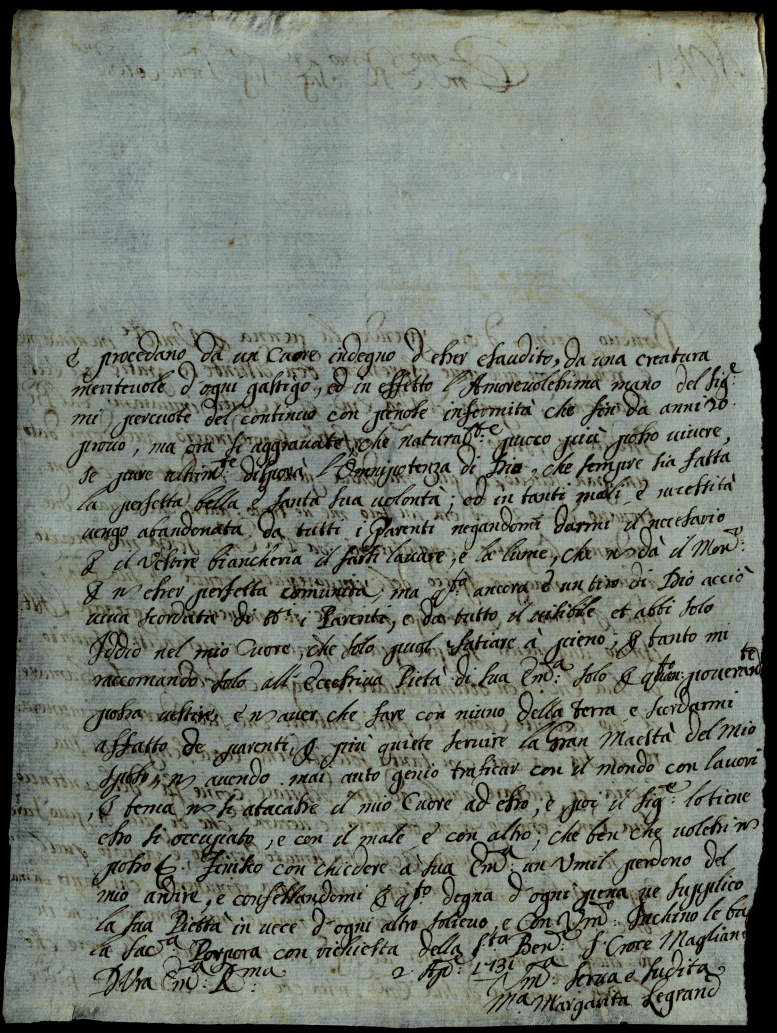 e procedano da un Cuore indegno d'esser esaudito, da una creatura
meritevole d'ogni gastigo, ed in effetto l'Amorevolessima mano del Sig.e
mi percuote del continuo con penose infermità che sin da anni 20
provo, ma ora si aggravate, che natural.te pocco più posso vivere,
se pure altrim.te disporà l'Onnipotenza di Dio, che sempre sia fatta
la perfetta bella e santa sua volontà; ed in tanti mali, e necessità
vengo abandonata da tutti i Parenti negandomi darmi il necesario
il vestire biancheria il farli lavare, e la lume, che n dà il Mon.o
n esser perfetta comunità, ma ancora è un tiro di Dio acciò
viva scordata di i Parenti, e da tutto il visibile et abbi solo
Iddio nel mio Cuore, che solo puol satiare à pieno; tanto mi
raccomando solo all'Eccessiva Pietà di sua Em.a solo poveram.te
possa vestire, e n aver che fare con niuno della terra e scordarmi
affatto de parenti, più quiete servire la Gran Maestà del mio
Sposo, n avendo mai auto genio traficar con il mondo con lavori
, tema n si atacasse il mio Cuore ad esso, e poi il Sig.e lo tiene
esso si occupato, e con il male e con altro, che ben che volessi n
posso. Finisco con chiedere à sua Em.a un Umil perdono del
mio ardire, e confessandomi degna d'ogni pena ne supplico
la sua Pietà in vece d'ogni altro solievo, e con Um.o Inchino le ba
la Sac.a Porpora con richiesta della S.ta Ben.e S. Croce Magliano
D Vra Em.a R.ma 2 Ap.e 1731
Um.a Serva e Sudita
M.a Margarita Legrand